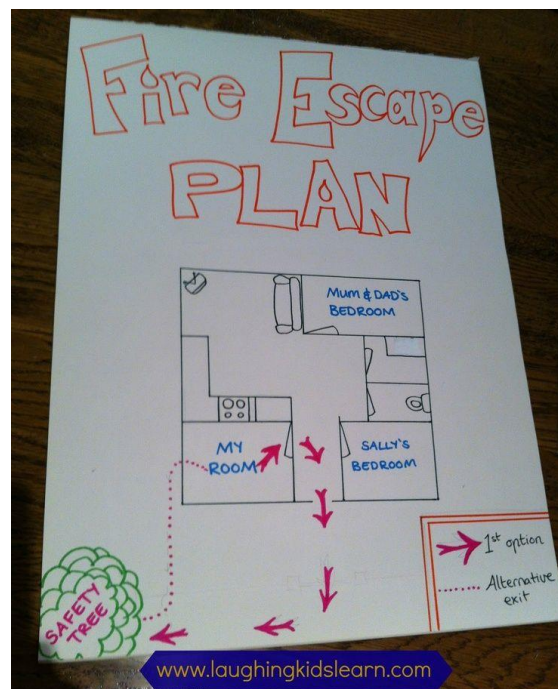 Fire Escape
PLAN
MUM & DAD'S
BEDROOM
MY
ROOM
SALLY'S
BEDROOM
1st option
Alternative
exit
SAFETY
TREE
www.laughingkidslearn.com